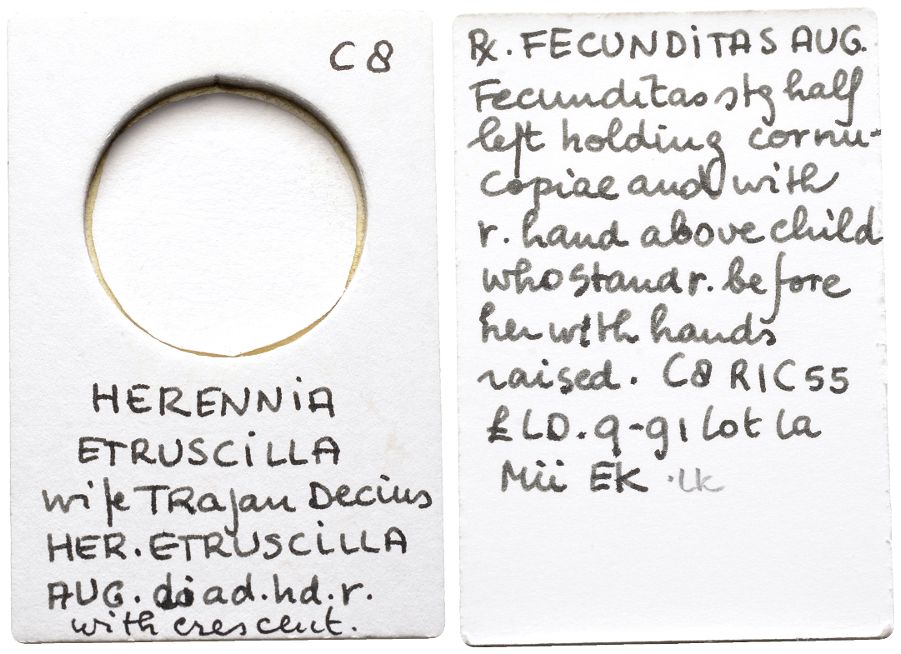 C8
HERENNiA
ETRUSCiLLA
wife TRajan Decius
HER. ETRUSCiLLA
AUG. diad. hd. r.
with crescent.
℞. FECUNDiTAS AUG.
Fecunditas stg half
left holding cornu-
copiae and with
r. hand above child
who stand r. before
her with hands
raised. C8 RIC 55
£LD. 9-91 lot la
Mii EK